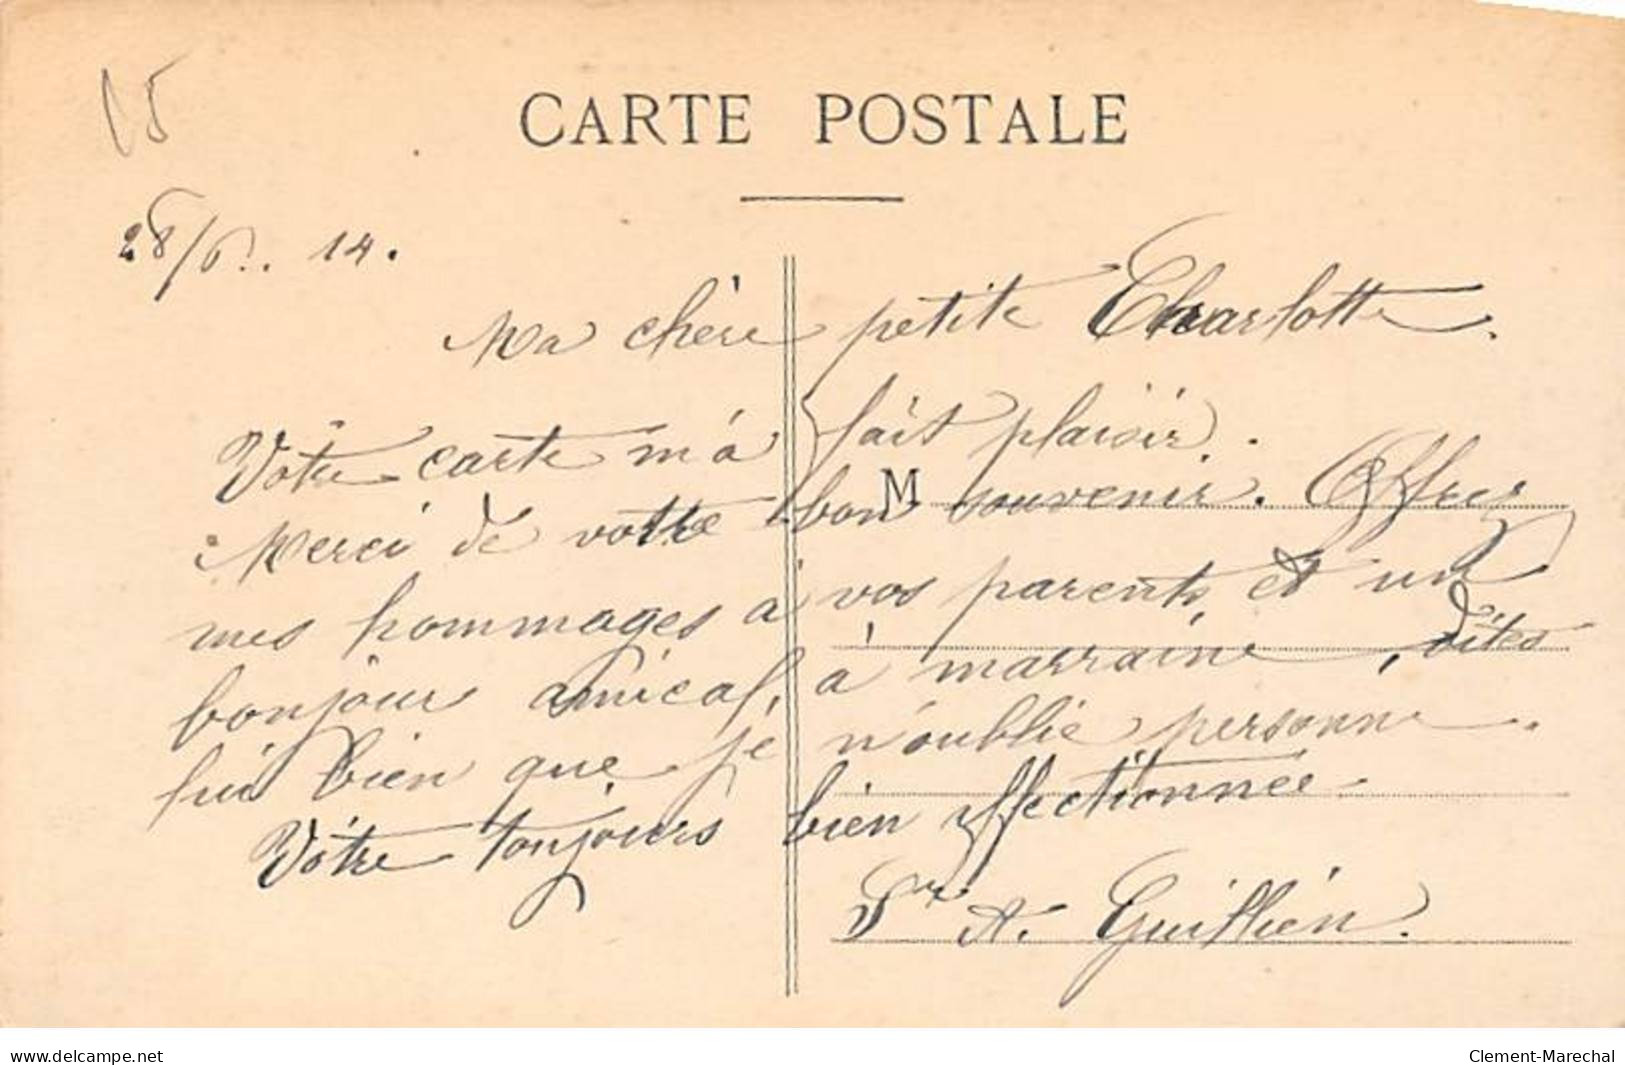 C5
CARTE POSTALE
28/6.. 14.
Ma chère petite Charlotte.
Vôtre carte m'a fait plaisir.
Merci de votre bon souvenir. Offrez
M
mes hommages à vos parents, et un
bonjour amical, à marraine, dites
lui bien que je n'oublie personne.
Vôtre toujours bien affectionnée.
Sr A. Guillien.
delcampe.net
Clement-Marechal